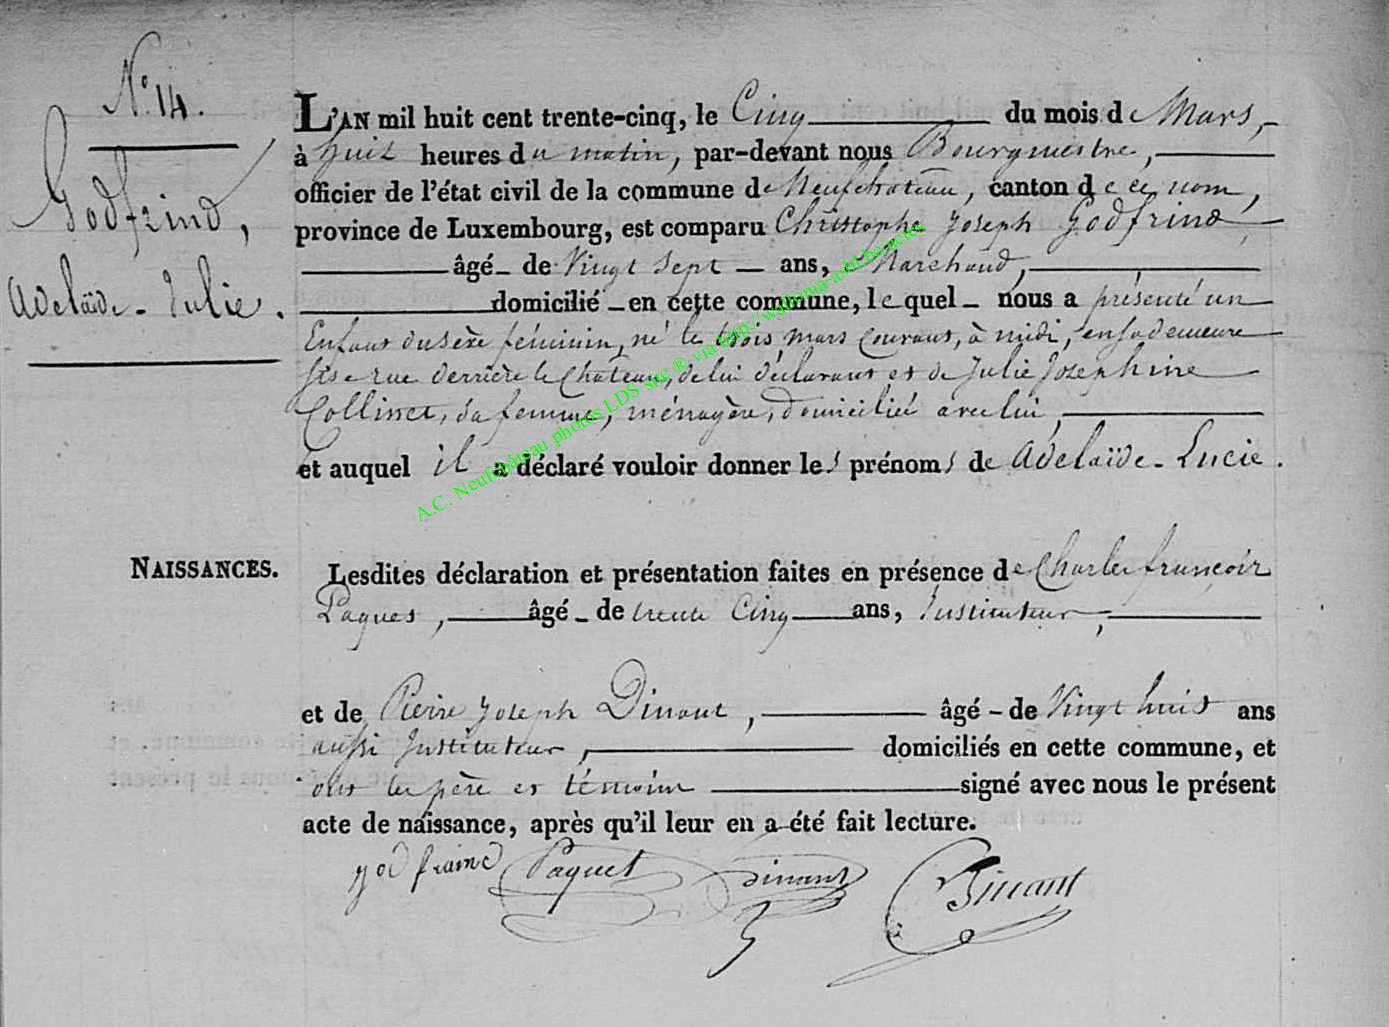 N° 14.
Godfrind,
Adelaïde-Julie.
L'AN mil huit cent trente-cinq, le Cinq du mois de Mars,
à huit heures du matin, par-devant nous Bourgmestre,
officier de l'état civil de la commune de Neufchateau, canton de ce nom,
province de Luxembourg, est comparu Christophe Joseph Godfrind
âgé de Vingt Sept ans, Marchand,
domicilié en cette commune, lequel nous a présenté un
Enfant du sèxe féminin, né le trois mars Courant, à midi, en sa demeure
sise rue derrière le Chateau, de lui déclarant et de Julie Josephine
Collinet, sa femme, ménagère, domiciliée avec lui,
et auquel il a déclaré vouloir donner les prénoms de Adelaïde-Lucie.
A.C. Neufchâteau photos LDS site ® via http://wallonia-asbl.be/actes
NAISSANCES.
Lesdites déclaration et présentation faites en présence de Charles françois
Paques, âgé de trente Cinq ans, Instituteur,
et de Pierre Joseph Dinant, âgé de Vingt huit ans
aussi Instituteur, domiciliés en cette commune, et
ont les père et témoins signé avec nous le présent
acte de naissance, après qu'il leur en a été fait lecture.
godfraind Paquet Dinant Dinant